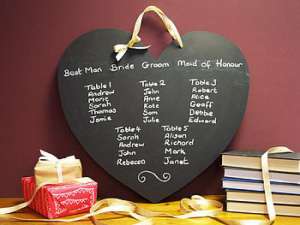 Best Man Bride Groom Maid of Honour
Table 1
Andrew
Marie
Sarah
Thomas
Jamie
Table 2
John
Anne
Kate
Sam
Julie
Table 3
Robert
Alice
Geoff
Debbie
Edward
Table 4
Sarah
Andrew
John
Rebecca
Table 5
Alison
Richard
Mark
Janet